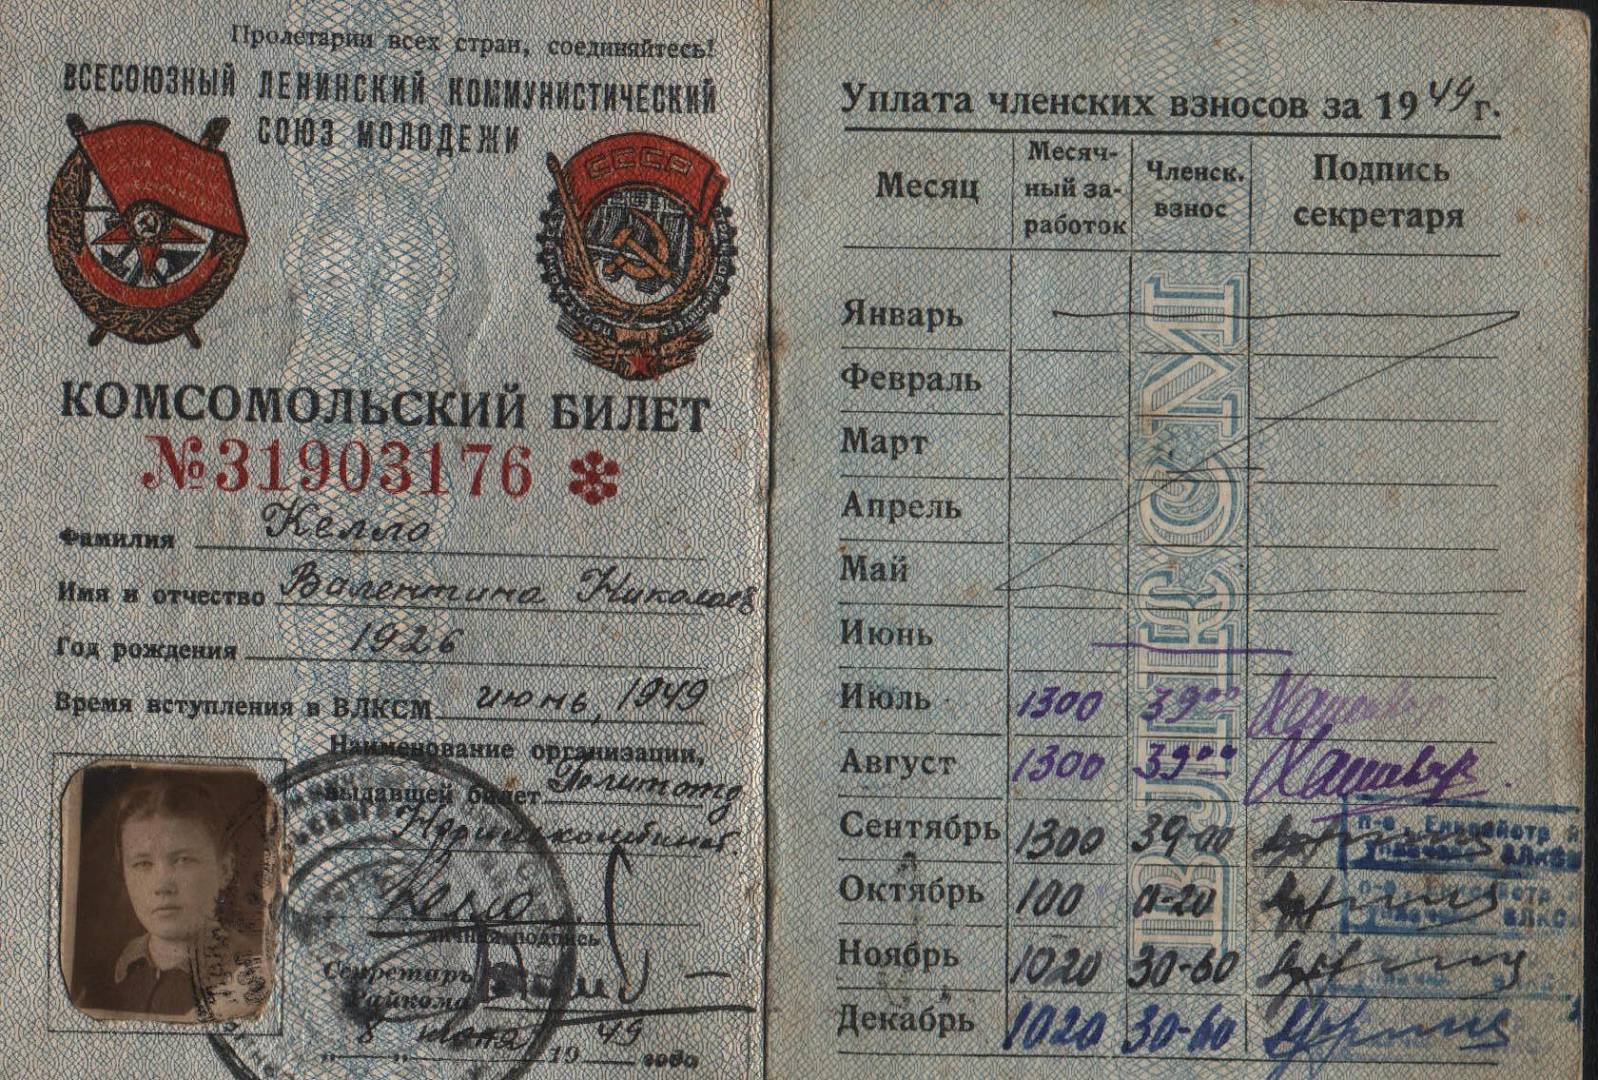 Пролетарии всех стран, соединяйтесь!
ВСЕСОЮЗНЫЙ ЛЕНИНСКИЙ КОММУНИСТИЧЕСКИЙ
СОЮЗ МОЛОДЕЖИ
СССР
КОМСОМОЛЬСКИЙ БИЛЕТ
№31903176
Фамилия Келло
Имя и отчество Валентина Николаев
Год рождения 1926
Время вступления в ВЛКСМ июнь, 1949
Наименование организации,
выдавшей билет Политотд
Келло
личная подпись
Секретарь
Райкома
8 июля 1949 года
Уплата членских взносов за 1949 г.
Месяц Месяч-ный за-работок Членск. взнос Подпись секретаря
ВЛКСМ
Январь
Февраль
Март
Апрель
Май
Июнь
Июль 1300 39 00
Август 1300 39 00
Сентябрь 1300 39-00
ВЛКСМ
Октябрь 100 0-20
Ноябрь 1020 30-60
Декабрь 1020 30-60